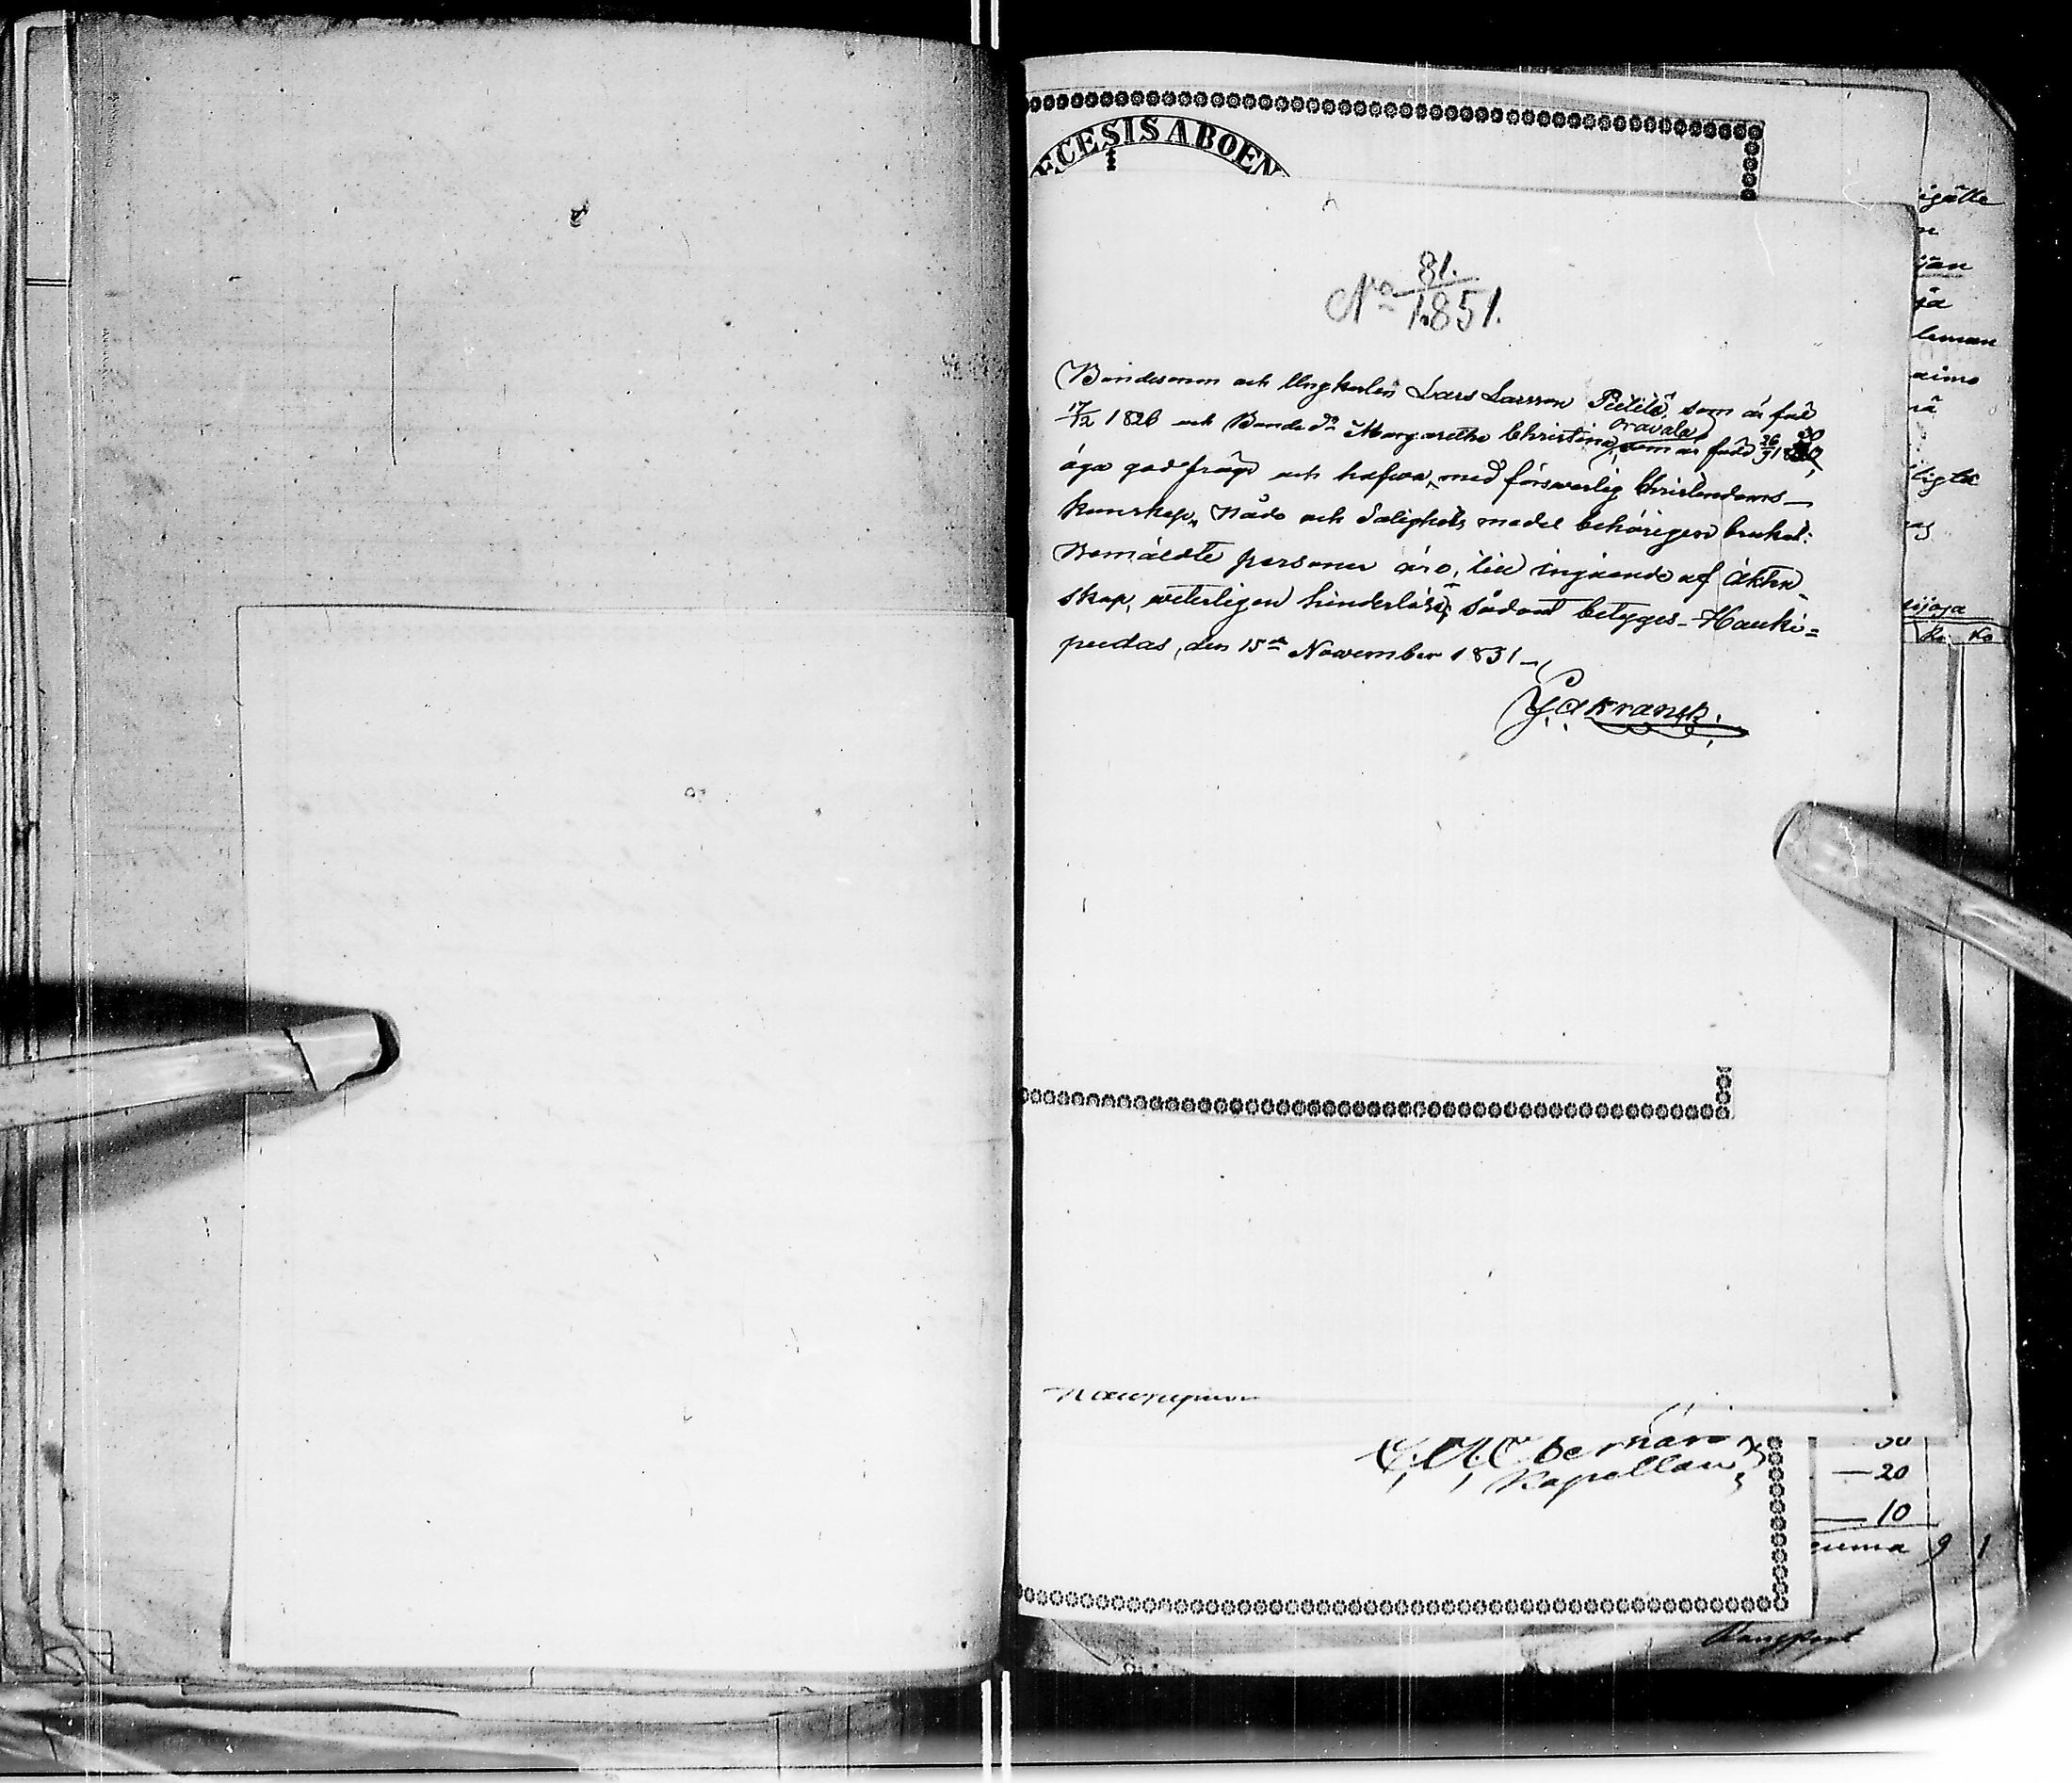 ECESIS ABOEN
No 81.
1851.
Bondesonen och Ungkarlen Lars Larsson Pietilä, som är föd
17/12 1826 och Bonde dr Margaretha Christina Oravala, som är född 26/9 1830
äga god frägd och hafva, med försvarlig Christendoms
kunskap, Nåde och Salighets medel behörigen brukat:
Bemäldte personer äro, till ingående af äkten-
skap, veterligen hinderlösa; sådant betygges. Hauki=
pudas, den 15de November 1851.
Kranck.
Kapellan
20
10
igälle
jän
leman
aimo
ligta
Ro Ko
9 1